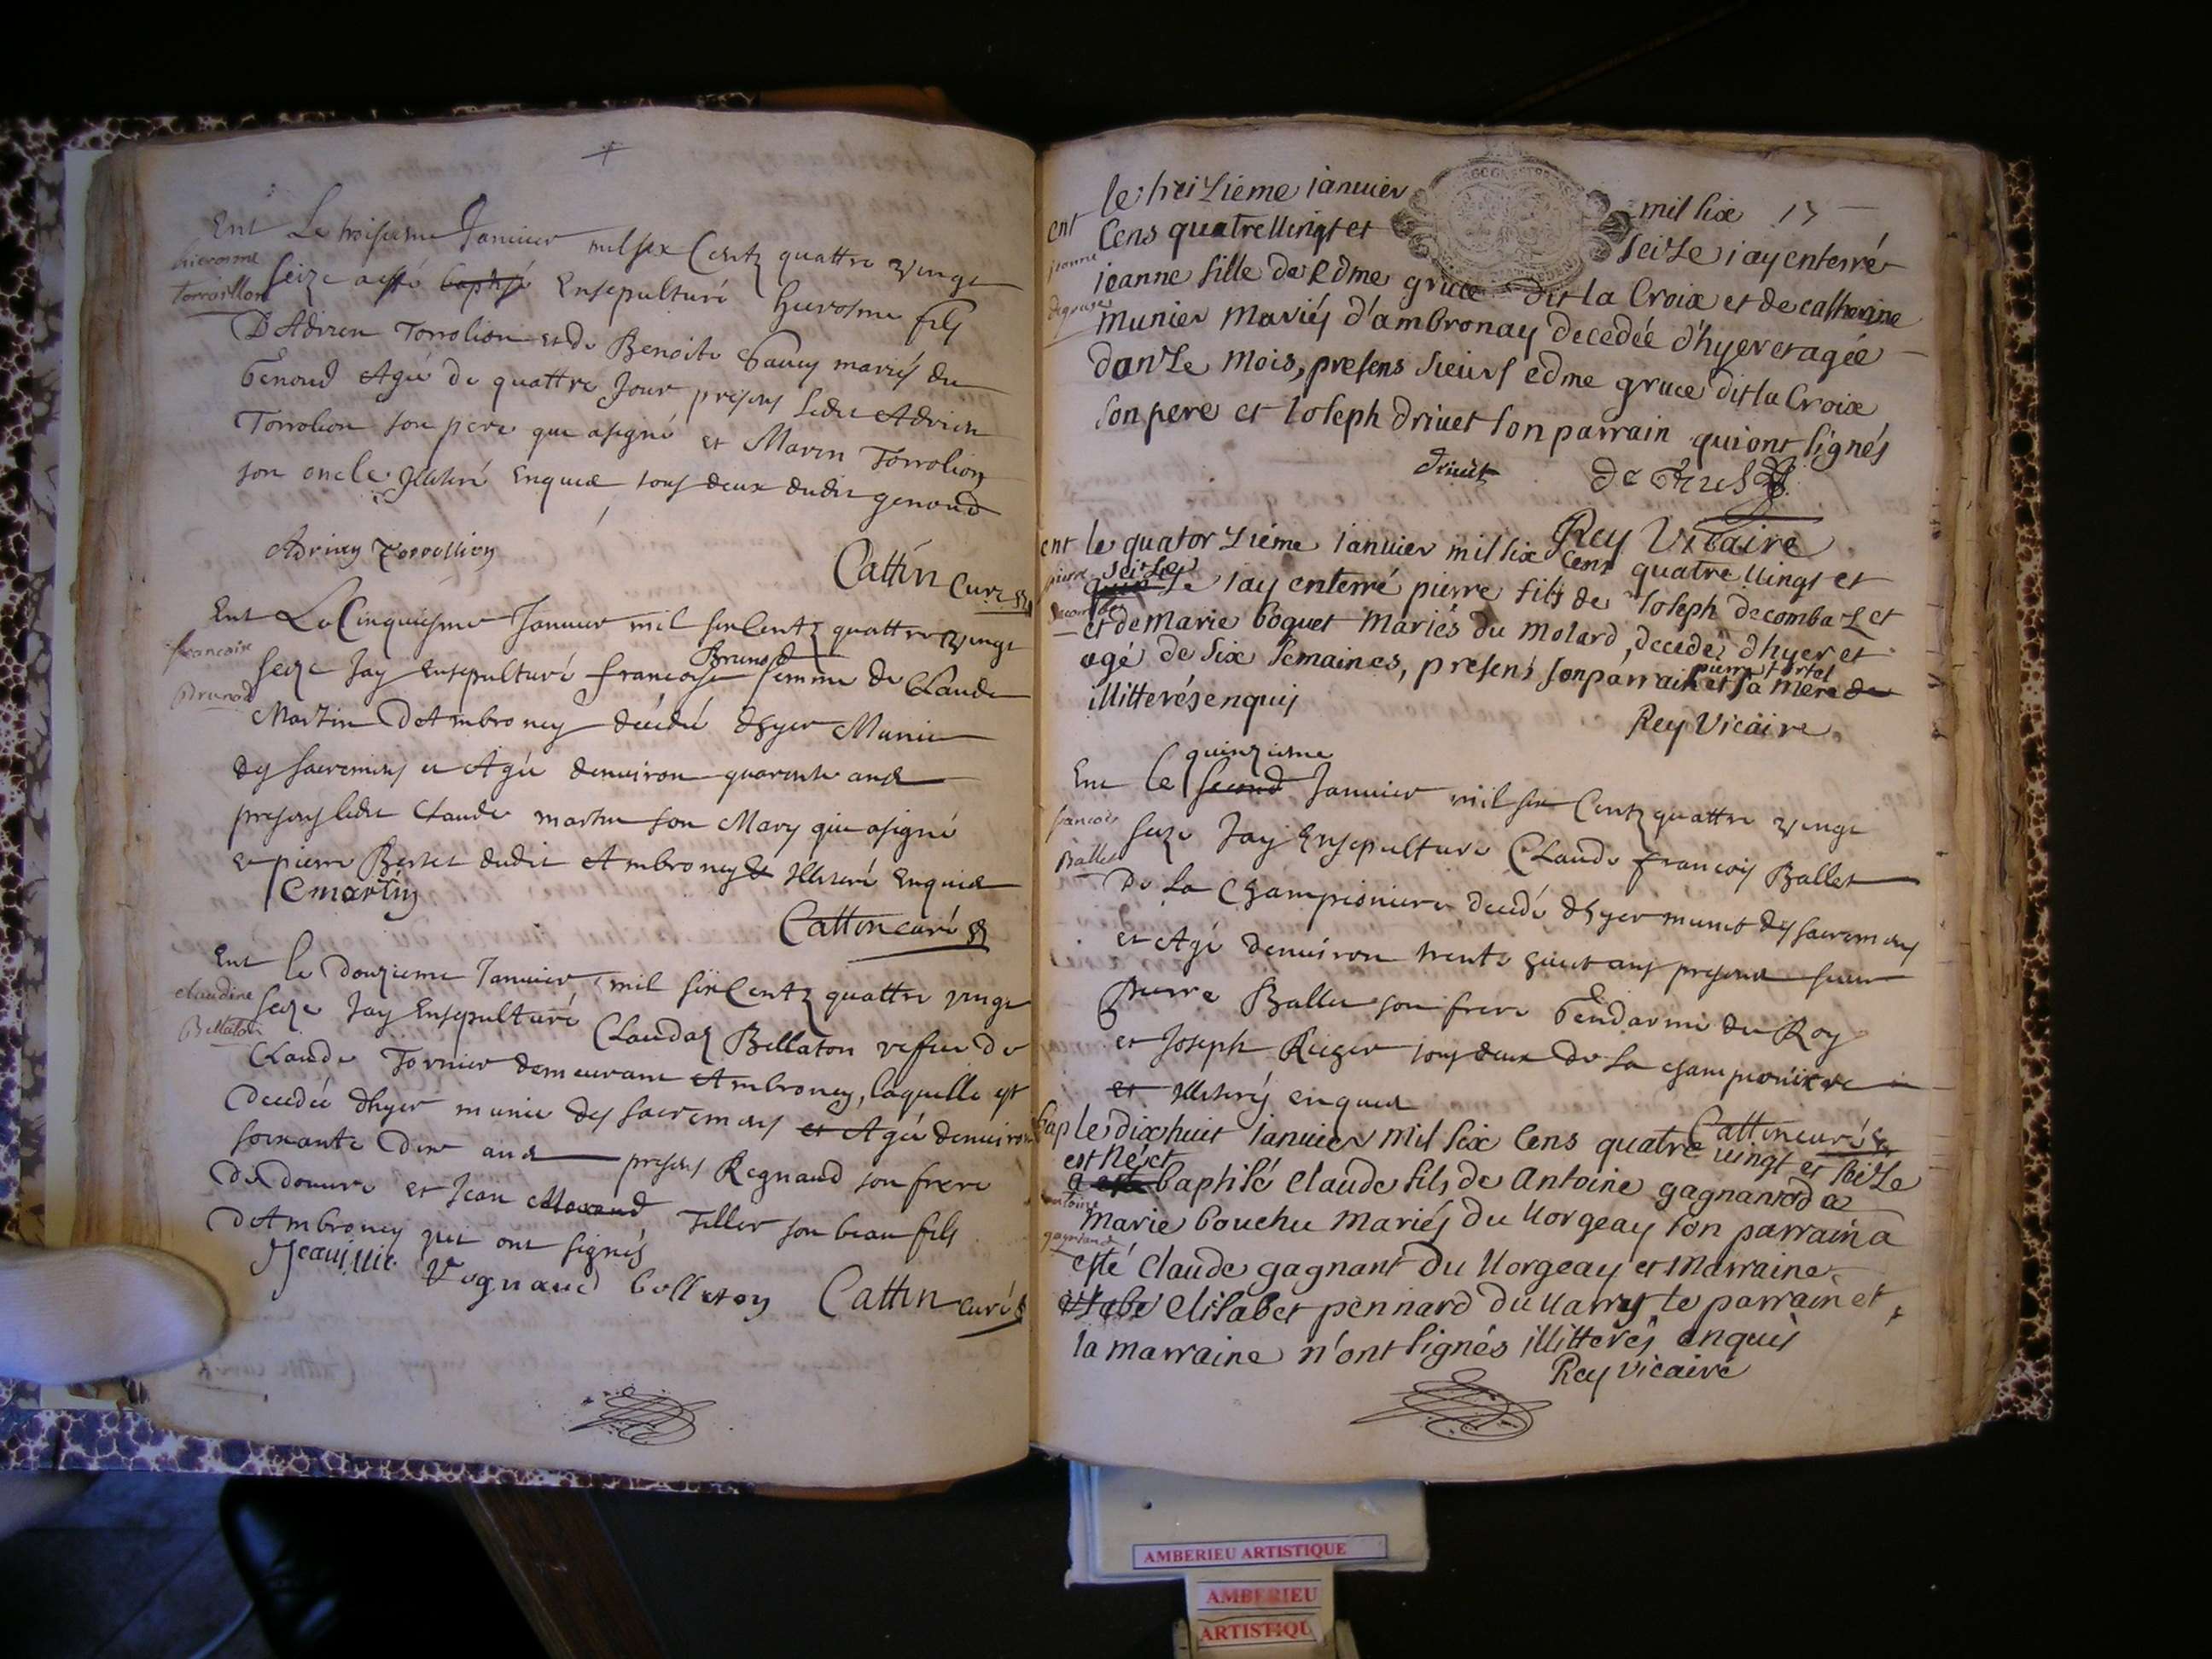 Ent Le troisiesme Janvier mil six Centz quattre vingt
hierosme
Torroillon
seize a esté baptisé Ensepulturé hierosme fils
D'Adrien Torrolion et de Benoite mariés du
Genoud Agé de quattre Jour presens ledit Adrien
Torrolion son pere qui a signé et Marin Torrolion
son oncle Illiteré Enquis tous deux dudit genoud
Adrien Torrollion
Cattin Curé
Ent Le Cinquiesme Janvier mil six Centz quattre vingt
francoise
Brunod
Brunod
seize Jay Ensepulturé francoise femme de Claude
Martin d'Ambroney décédé dhyer Munie
des sacremens et Agée denviron quarante ans
presens ledit Claude martin son Mary qui a signé
et pierre dudit Ambroney & Illiteré Enquis
C martin
Cattin curé
Ent le douzieme Janvier mil six Centz quattre vingt
claudine
Bellaton
seize Jay Ensepulturé Claudaz Bellaton vefue de
Claude Tornier demeurant Ambroney, laquelle est
decedée dhyer munie des sacremens et Agée denviron
soixante dix ans presens Regnaud son frere
de douvre et Jean Tillier son beau fils
d'Ambroney qui ont signés
Cattin curé
le treizieme ianuier mil six 17
ent Cens quatre Uingt et seize iay enterré
jeanne
jeanne fille de Edme gruce dit la Croix et de catherine
munier Mariés d'ambronay decedée d'hyer et agée
d'onze Mois, presens Sieurs edme gruce dit la Croix
son pere et Ioseph driuet son parrain qui ont signés
driuet
Rey Vicaire
ent le quatorzième ianuier mil six Cens quatre Uingt et
pierre
decombe
seize
iay enterré pierre fils de Ioseph decombaz et
et de Marie boguet Mariés du Molard, decedé d'hyer et
agé de six Semaines, presens son parrain pierre tortel et sa mere de
illitterés enquis
Rey Vicaire
quinziesme
Ent le second Janvier mil six Centz quattre vingt
francois
Ballet
seize Jay Ensepulture Claude francois Ballet
De La Championiere decedé dhyer munit des sacremens
et Agé denviron trente huict ans presens sieur
Pierre Ballet son frere Gendarme du Roy
et Joseph tous deux de La championiere
et Illiterés enquis
Cattin curé
bap le dix huit ianuier mil six Cens quatre uingt et seize
est né et
a esté baptisé Claude fils de Antoine gagnant & de
antoine
gagnand
Marie bouchu Mariés du Uorgeay son parrain a
esté Claude gagnant du Uorgeay et Marraine
elisabet pennard du Uarrey le parrain et
la marraine n'ont signés illitterés enquis
Rey vicaire
AMBERIEU ARTISTIQUE
AMBERIEU
ARTISTIQU